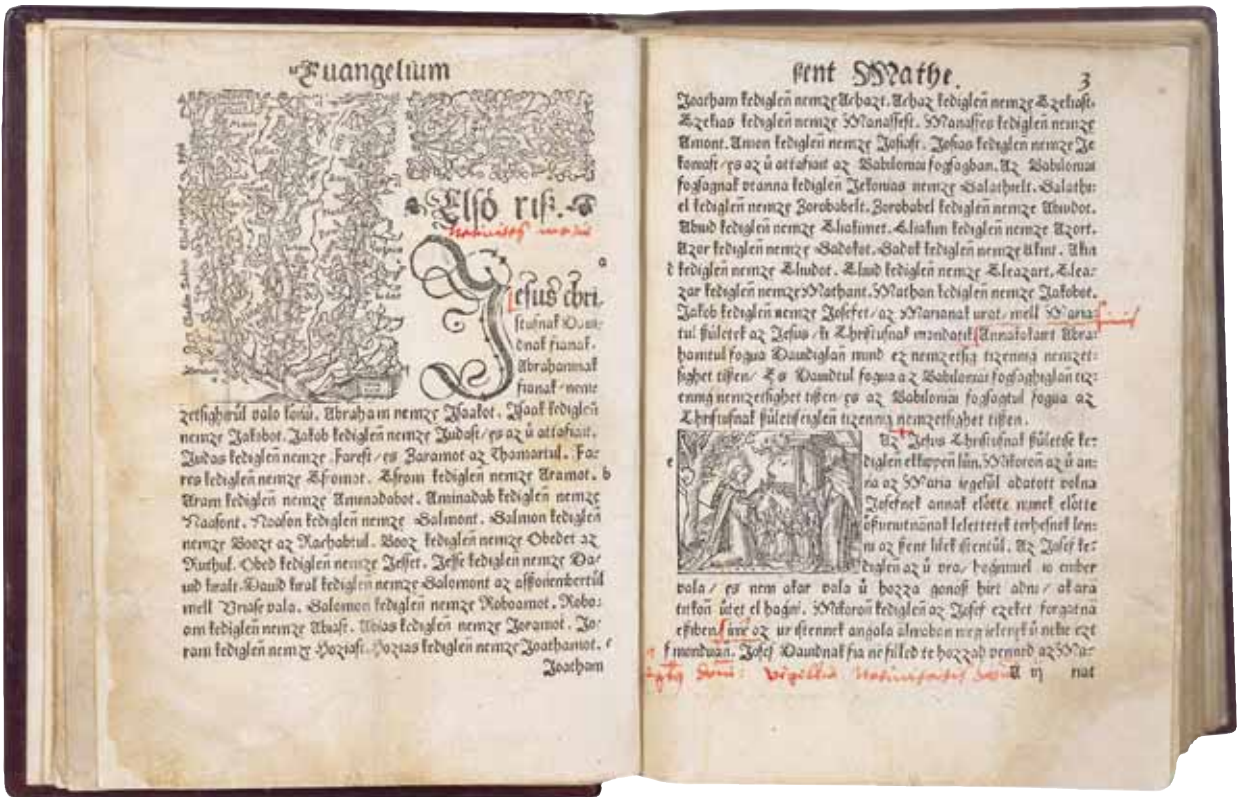 Euangelium
Elsó riß.
a
Jesus chri-
stusnak Daui-
dnak fianak.
Abrahamnak
fianak / nem-
zetsighirűl valo konű. Abraham nemze Isaakot. Isaak kediglen̄
nemze Jakobot. Jakob kediglen̄ nemze Judast / es az ű attafiait.
Judas kediglen̄ nemze Farest / es Zaramot az Thamartul. Fa-
res kediglen̄ nemze Esromot. Esrom kediglen̄ nemze Aramot. b
Aram kediglen̄ nemze Aminadabot. Aminadab kediglen̄ nemze
Naasont. Naason kediglen̄ nemze Salmont. Salmon kediglen̄
nemze Boozt az Rachabtul. Booz kediglen̄ nemze Obedet az
Ruthul. Obed kediglen̄ nemze Jesset. Jesse kediglen̄ nemze Da-
uid kiralt. Dauid kiral kediglen̄ nemze Salomont az assonienbertűl
mell Uriase vala. Salomon kediglen̄ nemze Roboamot. Robo-
am kediglen̄ nemze Abiast. Abias kediglen̄ nemze Joramot. Jo-
ram kediglen̄ nemze Hoziast. Hozias kediglen̄ nemze Joathamot. c
Joatham
ßent Mathe. 3
Joatham kediglen̄ nemze Achazt. Achaz kediglen̄ nemze Ezekiast.
Ezekias kediglen̄ nemze Manassest. Manasses kediglen̄ nemze
Amont. Amon kediglen̄ nemze Josiast. Josias kediglen̄ nemze Je
koniast / es az ű attafiait az Babiloniai fogsagban. Az Babiloniai
fogsagnak vtanna kediglen̄ Jekonias nemze Salathielt. Salathi-
el kediglen̄ nemze Zorobabelt. Zorobabel kediglen̄ nemze Abiudot.
Abiud kediglen̄ nemze Eliakimet. Eliakim kediglen̄ nemze Azort.
Azor kediglen̄ nemze Sadokot. Sadok kediglen̄ nemze Akint. Akin
d kediglen̄ nemze Eliudot. Eliud kediglen̄ nemze Eleazart. Elea-
zar kediglen̄ nemze Mathant. Mathan kediglen̄ nemze Jakobot.
Jakob kediglen̄ nemze Josefet / az Marianak urat / mell Maria-
tul ßűletek az Jesus / ki Christusnak mondatik Annakokairt Abra-
hamtul fogua Dauidiglan̄ mind ez nemzetsig tizennig nemzet-
sighet tißen / Es Dauidtul fogua az Babiloniai fogsaghiglan̄ tiz-
ennig nemzetsighet tißen / es az Babiloniai fogsagtul fogua az
Christusnak ßűletisiglen̄ tizennig nemzetsighet tißen.
Az Jesus Christusnak ßűletise ke-
e diglen ekkippen lűn. Mikoron az ű an-
nia az Maria iegesűl adatott volna
Josefnek annak elótte minek elótte
óßuemennének leletetek terhesnek len-
ni az ßent lilek istentűl. Az Josef ke-
diglen az ű vra / hoghmiuel io ember
vala / es nem akar vala ű hozza gonoß hirt adni / akara
titkon űtet el hagni. Mikoron kediglen az Josef ezeket forgatna
esziben / ime az ur istennek angala almaban megielenek ű neki ezt
f monduan. Josef Dauidnak fia ne filled te hozzad venned az Ma-
vigilia Natiuitatis A iij riat